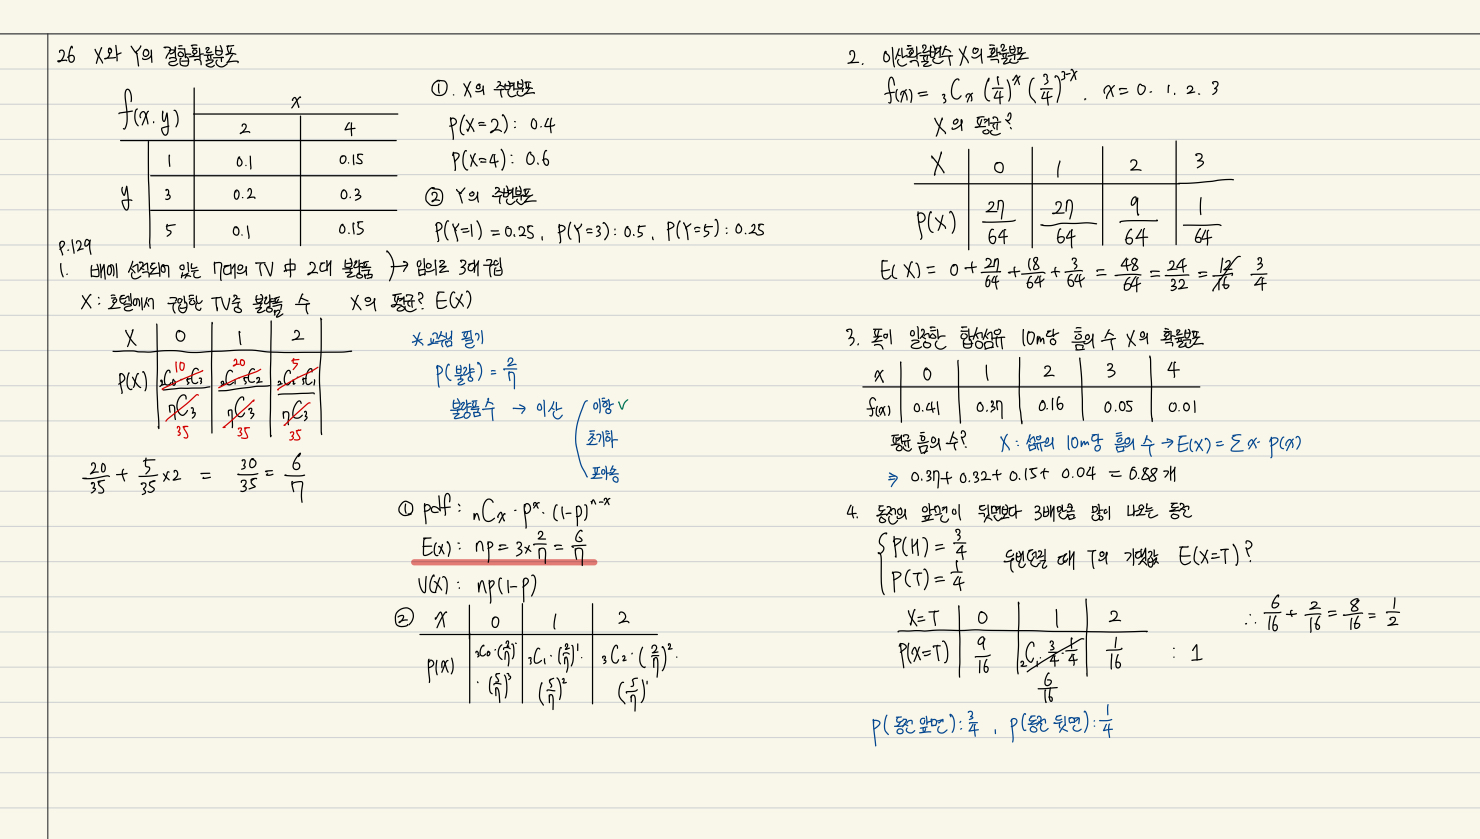 26 X와 Y의 결합확률분포
f(x.y) x
2 4
y
1 0.1 0.15
3 0.2 0.3
5 0.1 0.15
①. X의 주변분포
P(X=2): 0.4
P(X=4): 0.6
② Y의 주변분포
P(Y=1) = 0.25, P(Y=3): 0.5, P(Y=5): 0.25
P.129
1. 배에 선적되어 있는 7대의 TV 中 2대 불량품 → 임의로 3대 구입
X: 호텔에서 구입한 TV중 불량품 수 X의 평균? E(X)
X 0 1 2
P(X) ₂C₀·₅C₃/₇C₃ ₂C₁·₅C₂/₇C₃ ₂C₂·₅C₁/₇C₃
10/35 20/35 5/35
20/35 + 5/35 ×2 = 30/35 = 6/7
* 교수님 필기
P(불량) = 2/7
불량품 수 → 이산 ( 이항 ✓
초기하
포아송
① pdf: nCx · p^x · (1-p)^n-x
E(x): np = 3×2/7 = 6/7
V(X): np(1-p)
② x 0 1 2
p(x) ₃C₀·(2/7)^0·(5/7)^3 ₃C₁·(2/7)^1·(5/7)^2 ₃C₂·(2/7)^2·(5/7)^1
2. 이산확률변수 X의 확률분포
f(x) = ₃Cx (1/4)^x (3/4)^3-x. x = 0. 1. 2. 3
X의 평균?
X 0 1 2 3
P(X) 27/64 27/64 9/64 1/64
E(X) = 0 + 27/64 + 18/64 + 3/64 = 48/64 = 24/32 = 12/16 3/4
3. 폭이 일정한 합성섬유 10m당 흠의 수 X의 확률분포
x 0 1 2 3 4
f(x) 0.41 0.37 0.16 0.05 0.01
평균 흠의 수? X: 섬유의 10m당 흠의 수 → E(X) = Σ x· p(x)
⇒ 0.37 + 0.32 + 0.15 + 0.04 = 0.88 개
4. 동전의 앞면이 뒷면보다 3배만큼 많이 나오는 동전
P(H) = 3/4
P(T) = 1/4
두번 던질 때 T의 기댓값 E(X=T)?
X=T 0 1 2
P(X=T) 9/16 ₂C₁·3/4·1/4 1/16 : 1
6/16
∴ 6/16 + 2/16 = 8/16 = 1/2
P(동전 앞면): 3/4, P(동전 뒷면): 1/4